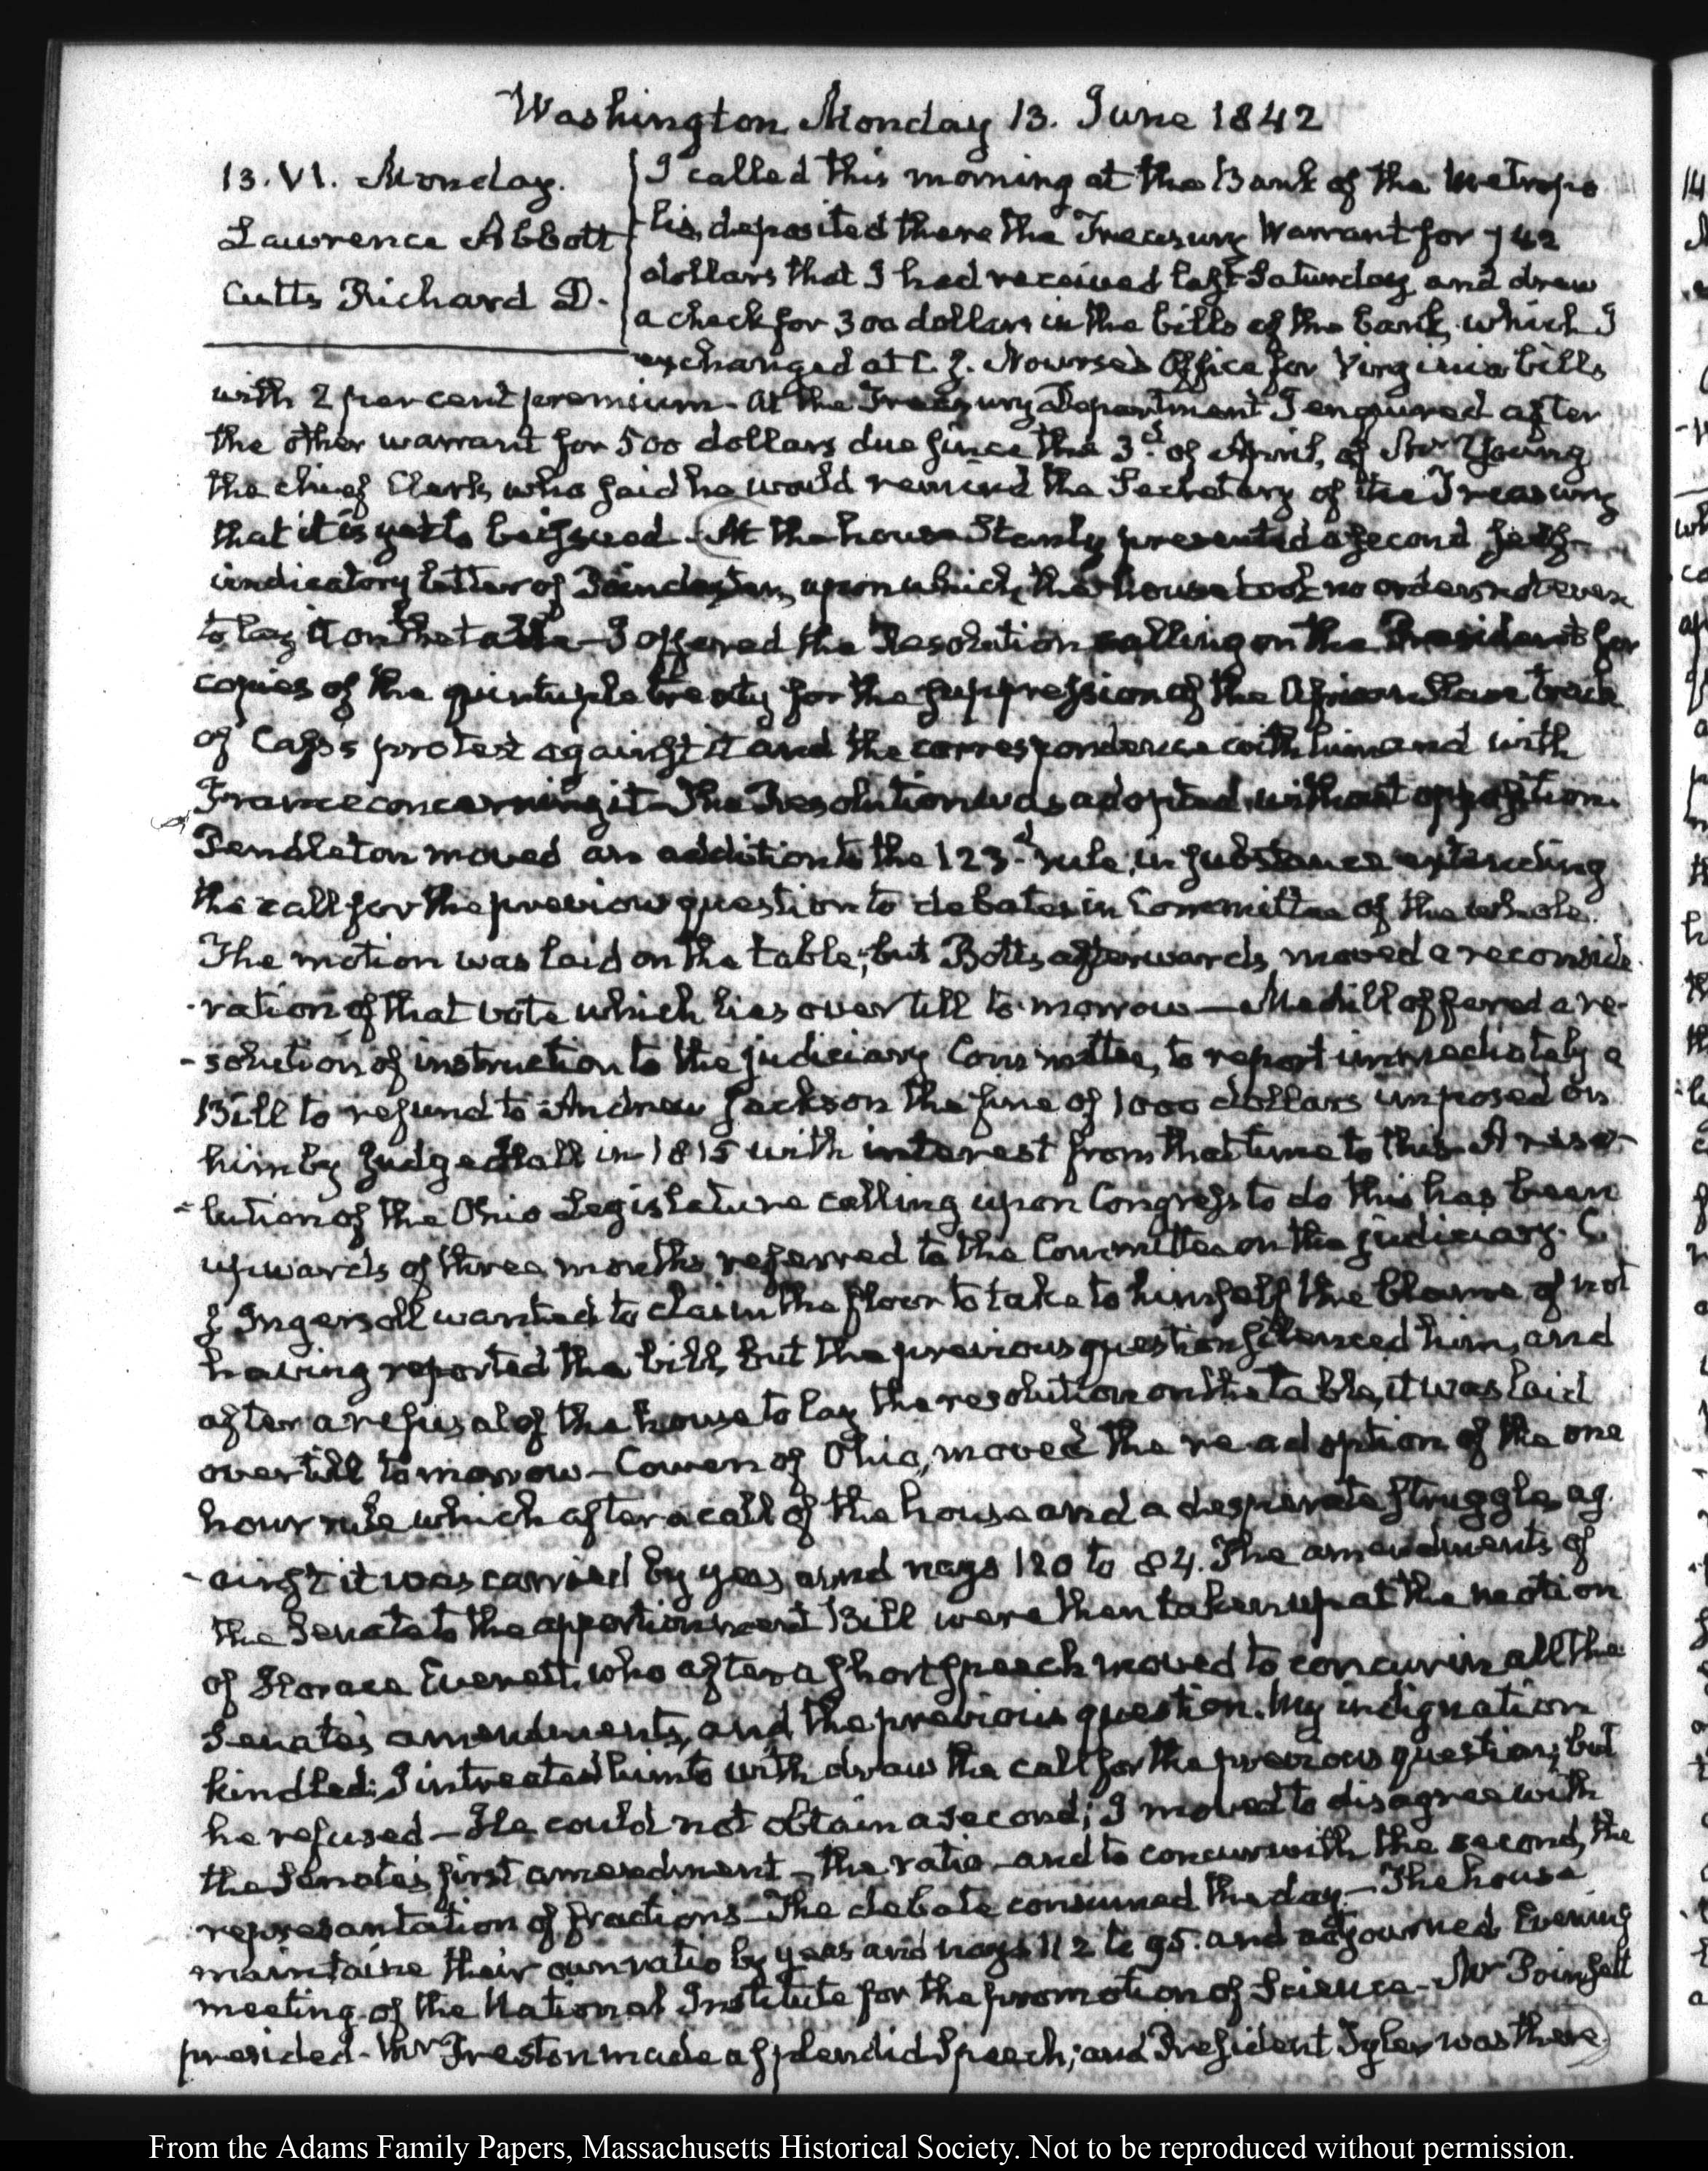 Washington Monday 13. June 1842
13. VI. Monday.
Lawrence Abbott
Cutts Richard D.
I called this morning at the Bank of the Metropo
-lis, deposited there the Treasury Warrant for 742
dollars that I had received last Saturday and drew
a check for 300 dollars in the bills of the bank, which I
exchanged at C. J. Nourse's Office for Virginia bills
with 2 per cent premium - At the Treasury Department I enquired after
the other warrant for 500 dollars due since the 3d. of April, of Mr Young
the chief Clerk, who said he would remind the Secretary of the Treasury
that it is yet to be issued - At the house Stanly presented a second self-
vindicatory letter of Poindexter, upon which, the house took no order not even
to lay it on the table - I offered the Resolution calling on the President for
copies of the quintuple treaty for the suppression of the African Slave trade
of Cass's protest against it and the correspondence with him and with
France concerning it - The Resolution was adopted without opposition.
Pendleton moved an addition to the 123.d rule, in substance extending
the call for the previous question to debates in Committee of the whole.
The motion was laid on the table; but Botts afterwards moved a reconside-
-ration of that vote which lies over till to-morrow — Medill offered a re-
-solution of instruction to the judiciary Committee, to report immediately a
Bill to refund to Andrew Jackson the fine of 1000 dollars imposed on
him by Judge Hall in 1815 with interest from that time to this - A reso-
-lution of the Ohio Legislature calling upon Congress to do this has been
upwards of three months referred to the Committee on the judiciary. C.
J. Ingersoll wanted to claim the floor to take to himself the blame of not
having reported the bill, but the previous question silenced him, and
after a refusal of the house to lay the resolution on the table, it was laid
over till tomorrow - Cowen of Ohio, moved the re-adoption of the one
hour rule which after a call of the house and a desperate struggle ag-
-ainst it was carried by yeas and nays 120 to 84. The amendments of
the Senate to the apportionment Bill were then taken up at the motion
of Horace Everett, who after a short speech moved to concur in all the
Senate's amendments, and the previous question. My indignation
kindled; I intreated him to withdraw the call for the previous question; but
he refused - He could not obtain a second; I moved to disagree with
the Senate's first amendment - the ratio - and to concur with the second, the
representation of fractions - The debate consumed the day - The house
maintaine their own ratio by yeas and nays 112 to 95. and adjourned Evening
meeting of the National Institute for the promotion of Science - Mr Poinsett
presided - Mr Preston made a splendid Speech; and President Tyler was there.
From the Adams Family Papers, Massachusetts Historical Society. Not to be reproduced without permission.